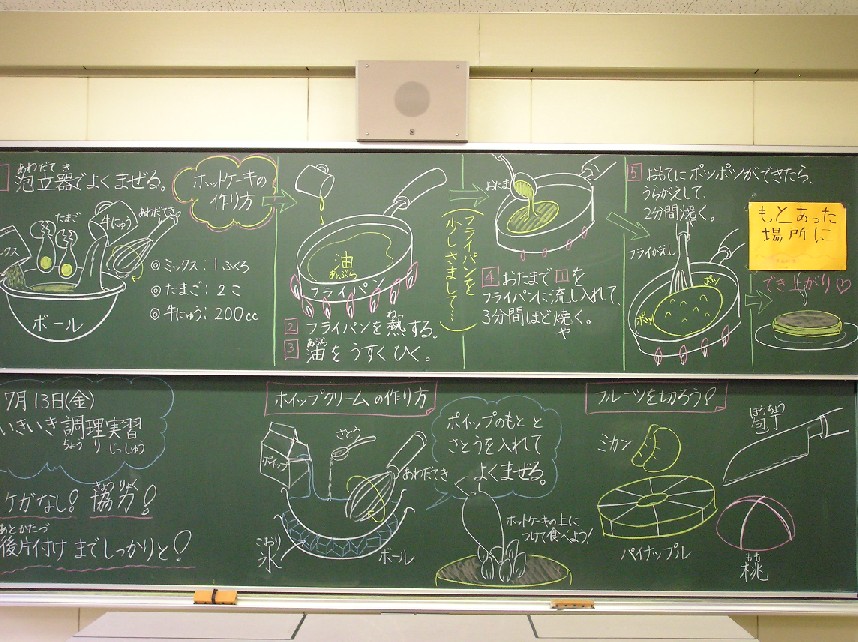 泡立器でよくまぜる。
あわだてき
ホットケーキの
作り方
ミックス
たまご
牛にゅう
あわだてき
ボール
◎ミックス：1ふくろ
◎たまご：2こ
◎牛にゅう：200cc
油
あぶら
フライパン
2 フライパンを熱する。
ねっ
3 油をうすくひく。
あぶら
(フライパンを
少しさまして〜)
おたま
4 おたまで1を
フライパンに流し入れて、
3分間ほど焼く。
や
5 焼てにポツポツができたら、
うらがえして、
2分間焼く。
フライがえし
もとあった
場所に
でき上がり♡
7月13日(金)
いきいき調理実習
ちょうりじっしゅう
ケガなし! 協力!
きょうりょく
あとかたづ
後片付けまでしっかりと!
ホイップクリームの作り方
ホイップ
さとう
あわだてき
こおり
氷
ボール
ホイップのもとと
さとうを入れて
よくまぜる。
ホットケーキの上に
つけて食べよう!
フルーツを切ろう!
ミカン
パイナップル
もも
桃